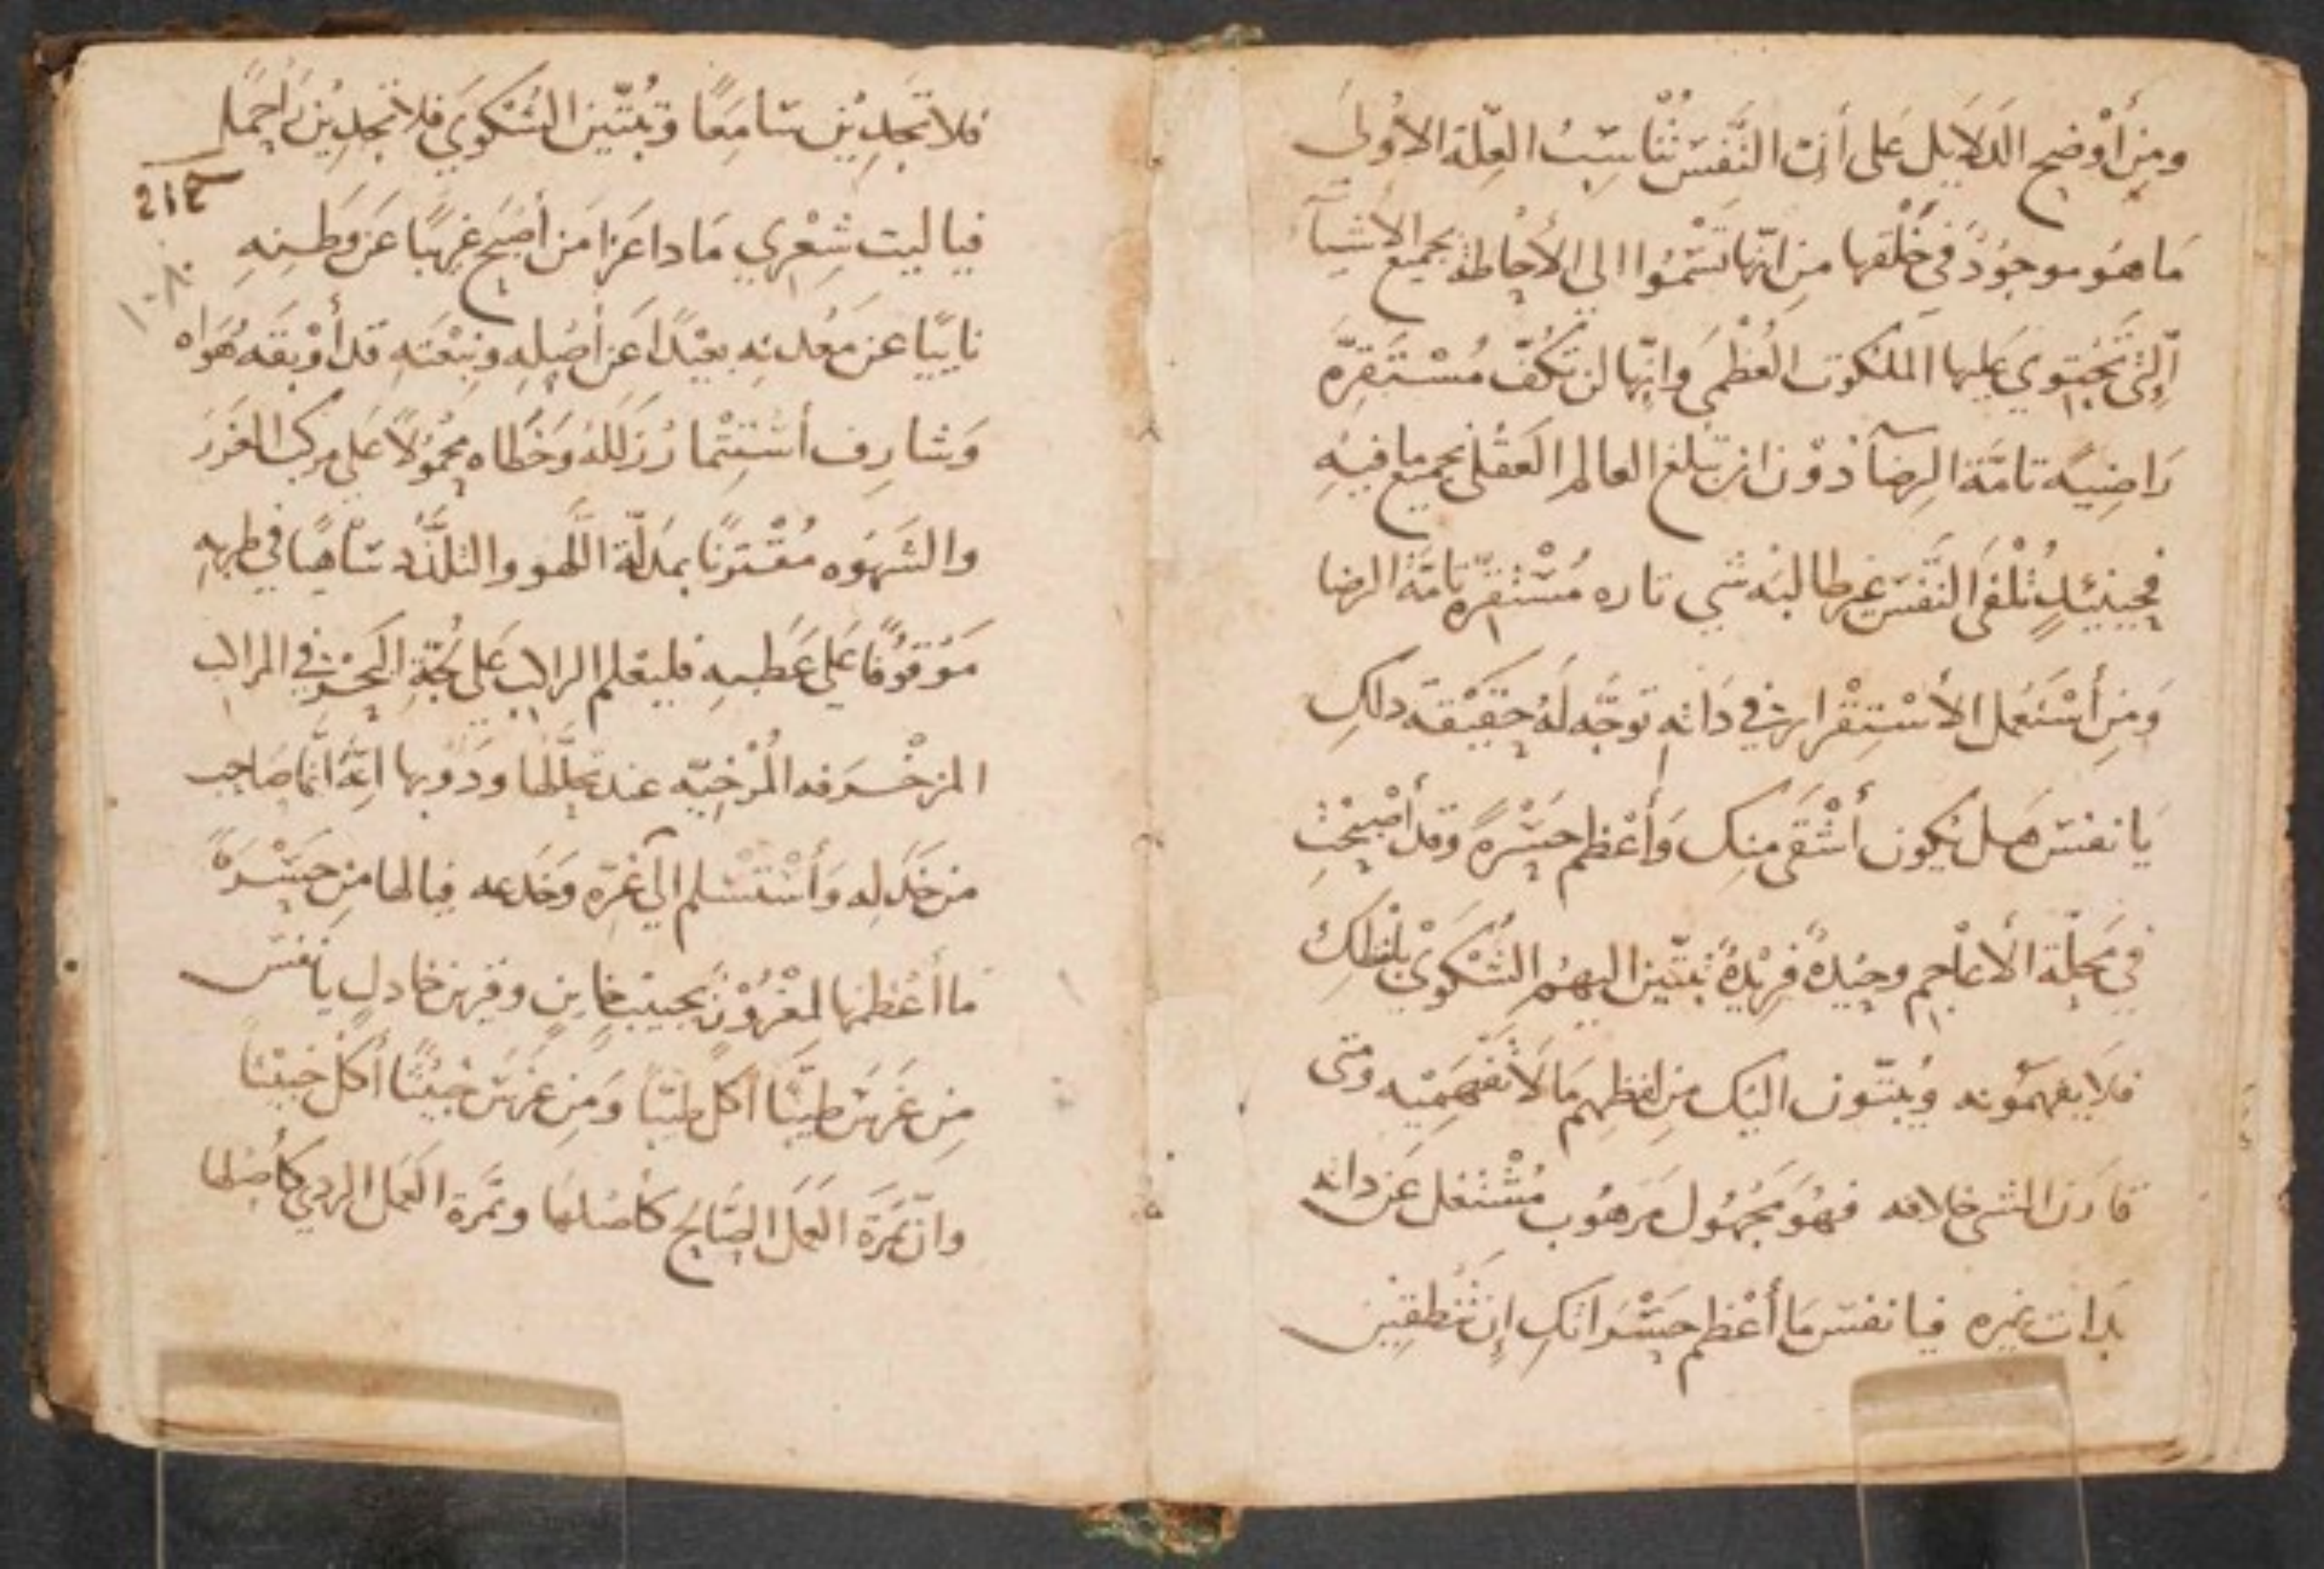 ومِن أَوْضح الدَلَايل عَلى أنّ النَّفسَ تُنَاسِبُ العِلّة الأوُلىَ
مَا هُو موجوُدٌ في خَلْقها مِن انّها تَسْمُوا الى الأحاطة بجميع الاشيآ
الّتى تَحْتوي عَليها الملكوت العُظْمىَ وانّها لن تكُفّ مُسْتَقِرّه
رَاضِيَه تامَّة الرضآ دُوْن ان تبلغ العالم العَقْلى بجميع ما فيهِ
فحينيئدٍ تُلْفىَ النَّفسَ غير طالبَه شي تاره مُسْتقِرّه تامّة الرضا
وَمِن أسْتَعمل الأسْتِقْرار في دَاته توجَّه لَهُ حقيْقة دلكِ
يَا نفسَ هَل يكون أشْقَى مِنكِ وَأعْظم حَسْرةً وقد أصْبحْتِ
في مَحلّة الأعاجم وحيْدةً فريْدةً تبتّين اليهُم الشكْوَيْ بلفْظكِ
فلَا يفهمَوُنه وُيبتّون اليَك مِن لفظِهم مَا لَا تفْهَمِيْه ومَتى
قارَن الشى خلافه فهُوَ مَجْهوُل مَرهُوب مُشْتغل عَن داته
بدات غيره فيا نفسَ مَا أعْظم حَسْرَاتكِ إن تنْطقِيْن
فلا تَجدِيْن سَامِعًا وتبُتّين الشكْويَ فلَا تَجدِيْن رَاحمًا
212
فيا ليت شِعْري مَادا عَزا مَن أصبَح غريبًا عَن وَطَنِهِ
١٠٨
نايئًا عَن مَعْدنِه بعيْدًا عَن أصْلِهِ ونبْعَتهِ قد أوْبقَه هَواه
وَشارف أسْتتْمار زلَلهُ وَخَطاه مَحْمُوْلًا عَلى مركب الغَرَر
والشَهوَه مُقْترنًا بمدَلّة اللَّهو والتلَذُّد سَاهيًا في طربهِ
مَوْقوُفًا عَلى عَطَبهِ فليعْلم الراكب عَلى لُجّةِ البَحْر في المراكب
المزخْرفه المُرْخيّه عند تحلُّلها ودَوْبها انّهُ انّما صَاحب
من خَدَله وَأسْتَسْلم الى مَن غرّه وَخَدعه فيالها مِن حَسْرَةً
ما أعْظمها لمغْرُوْرٍ بحبيْبٍ خاينٍ وقرين خادلٍ يا نفسَ
مِن غَرسَ طيّبًا أكل طيّبًا وَمَن غرسَ خبيْثًا أكل خبيْثًا
وانّ ثمَرَة العَمَل الصَالح كأصْلهَا وثمَرة العَمَل الردي كأصْلها